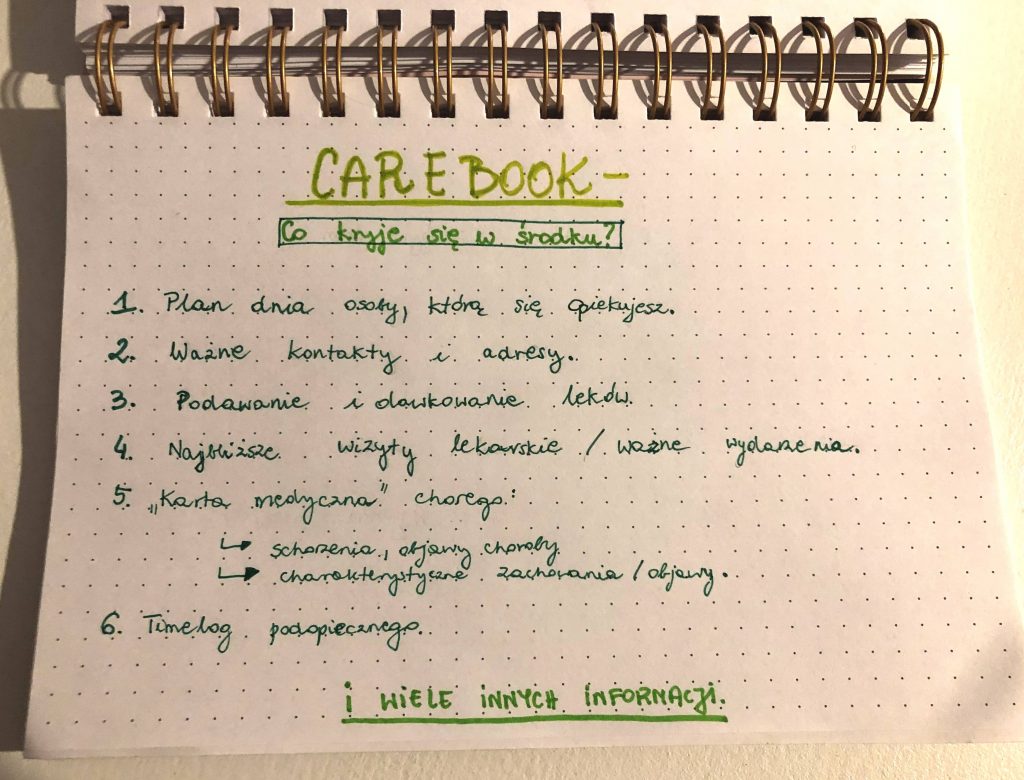 CAREBOOK -
Co kryje się w środku?
1. Plan dnia osoby, którą się opiekujesz.
2. Ważne kontakty i adresy.
3. Podawanie i dawkowanie leków.
4. Najbliższe wizyty lekarskie / ważne wydarzenia.
5. „Karta medyczna" chorego:
↳ schorzenia, objawy choroby
↳ charakterystyczne zachowania / objawy.
6. Timelog podopiecznego.
i WIELE INNYCH INFORMACJI.